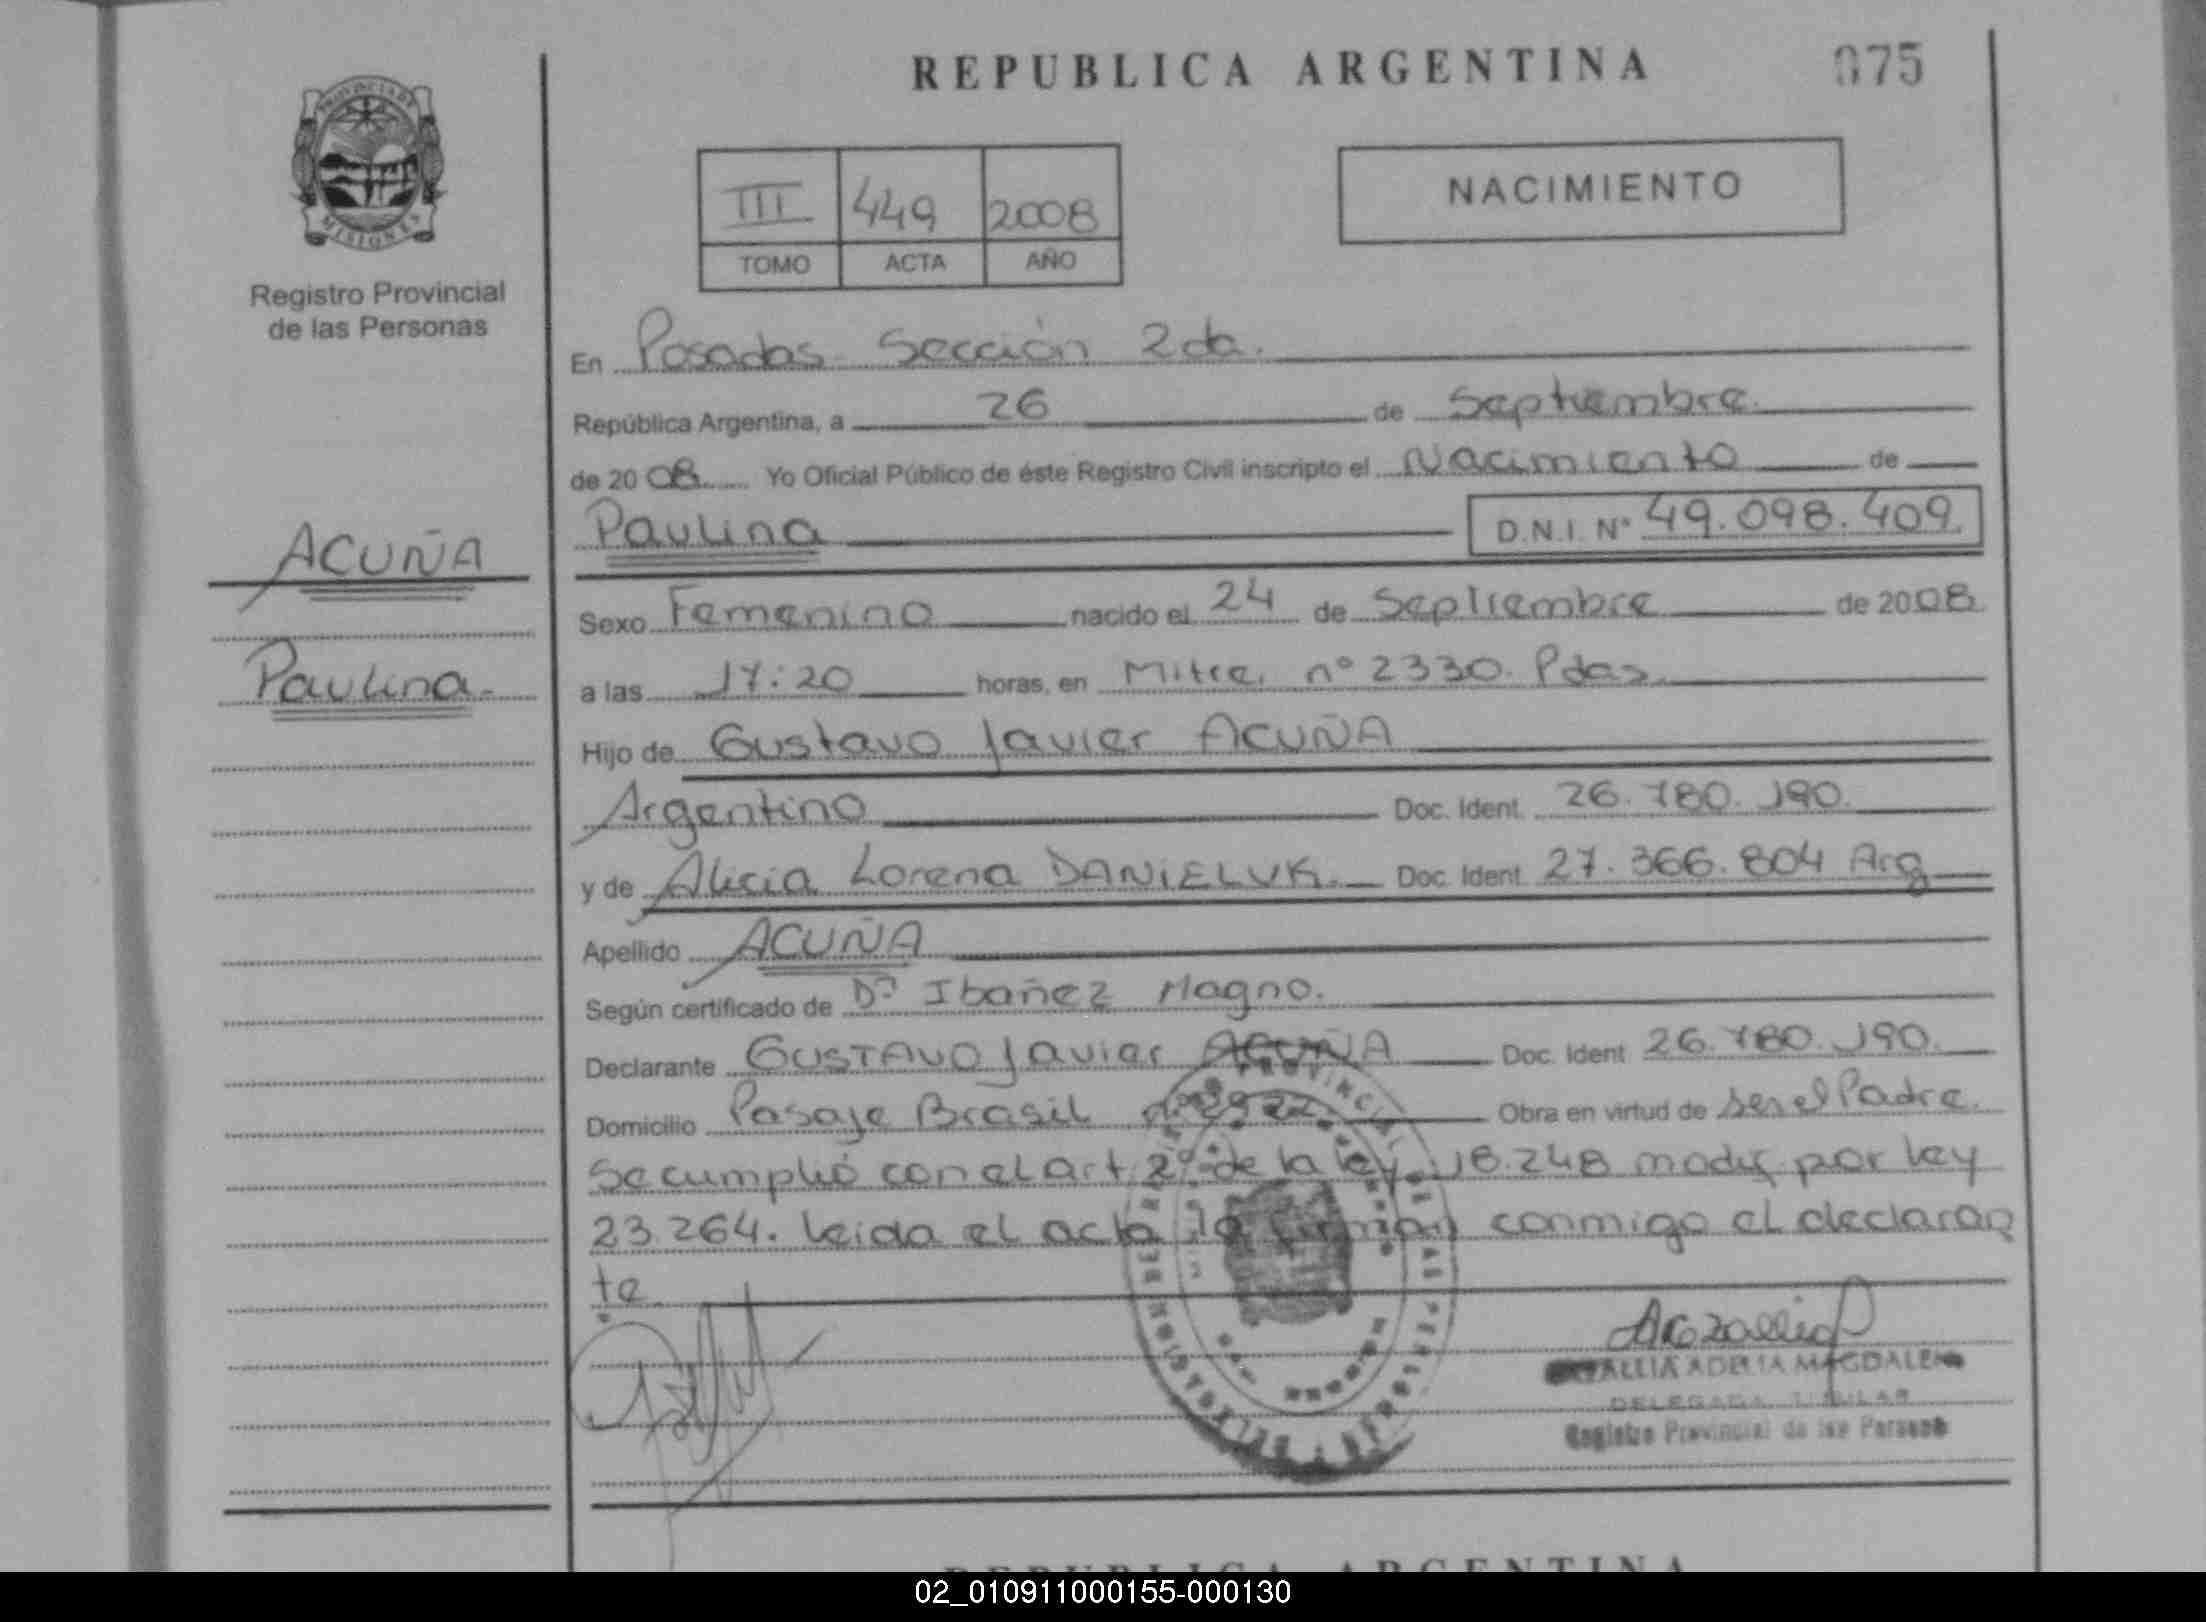 REPUBLICA ARGENTINA
075
PROVINCIA DE
MISIONES
Registro Provincial
de las Personas
III 449 2008
TOMO ACTA AÑO
NACIMIENTO
En Posadas Sección 2da.
República Argentina, a 26 de Septiembre.
de 2008 Yo Oficial Público de éste Registro Civil inscripto el Nacimiento de
ACUÑA
Paulina
Paulina D.N.I. Nº 49.098.409.
Sexo Femenino nacido el 24 de Septiembre de 2008
a las 17:20 horas, en Mitre, nº 2330. Pdas.
Hijo de Gustavo Javier ACUÑA
Argentino Doc. Ident. 26.780.190.
y de Alicia Lorena DANIELUK. Doc. Ident. 27.366.804 Arg
Apellido ACUÑA
Según certificado de Dr Ibañez Magno.
Declarante GUSTAVO Javier ACUÑA Doc. Ident 26.780.190.
Domicilio Pasaje Brasil nº 2922 Obra en virtud de ser el Padre.
Se cumplió con el art. 2º de la ley 18.248 modif por ley
23.264. Leida el acta la firman conmigo el declaran
te.
ADELIA MAGDALENA
DELEGADA TITULAR
Registro Provincial de las Personas
REPUBLICA ARGENTINA
02_010911000155-000130